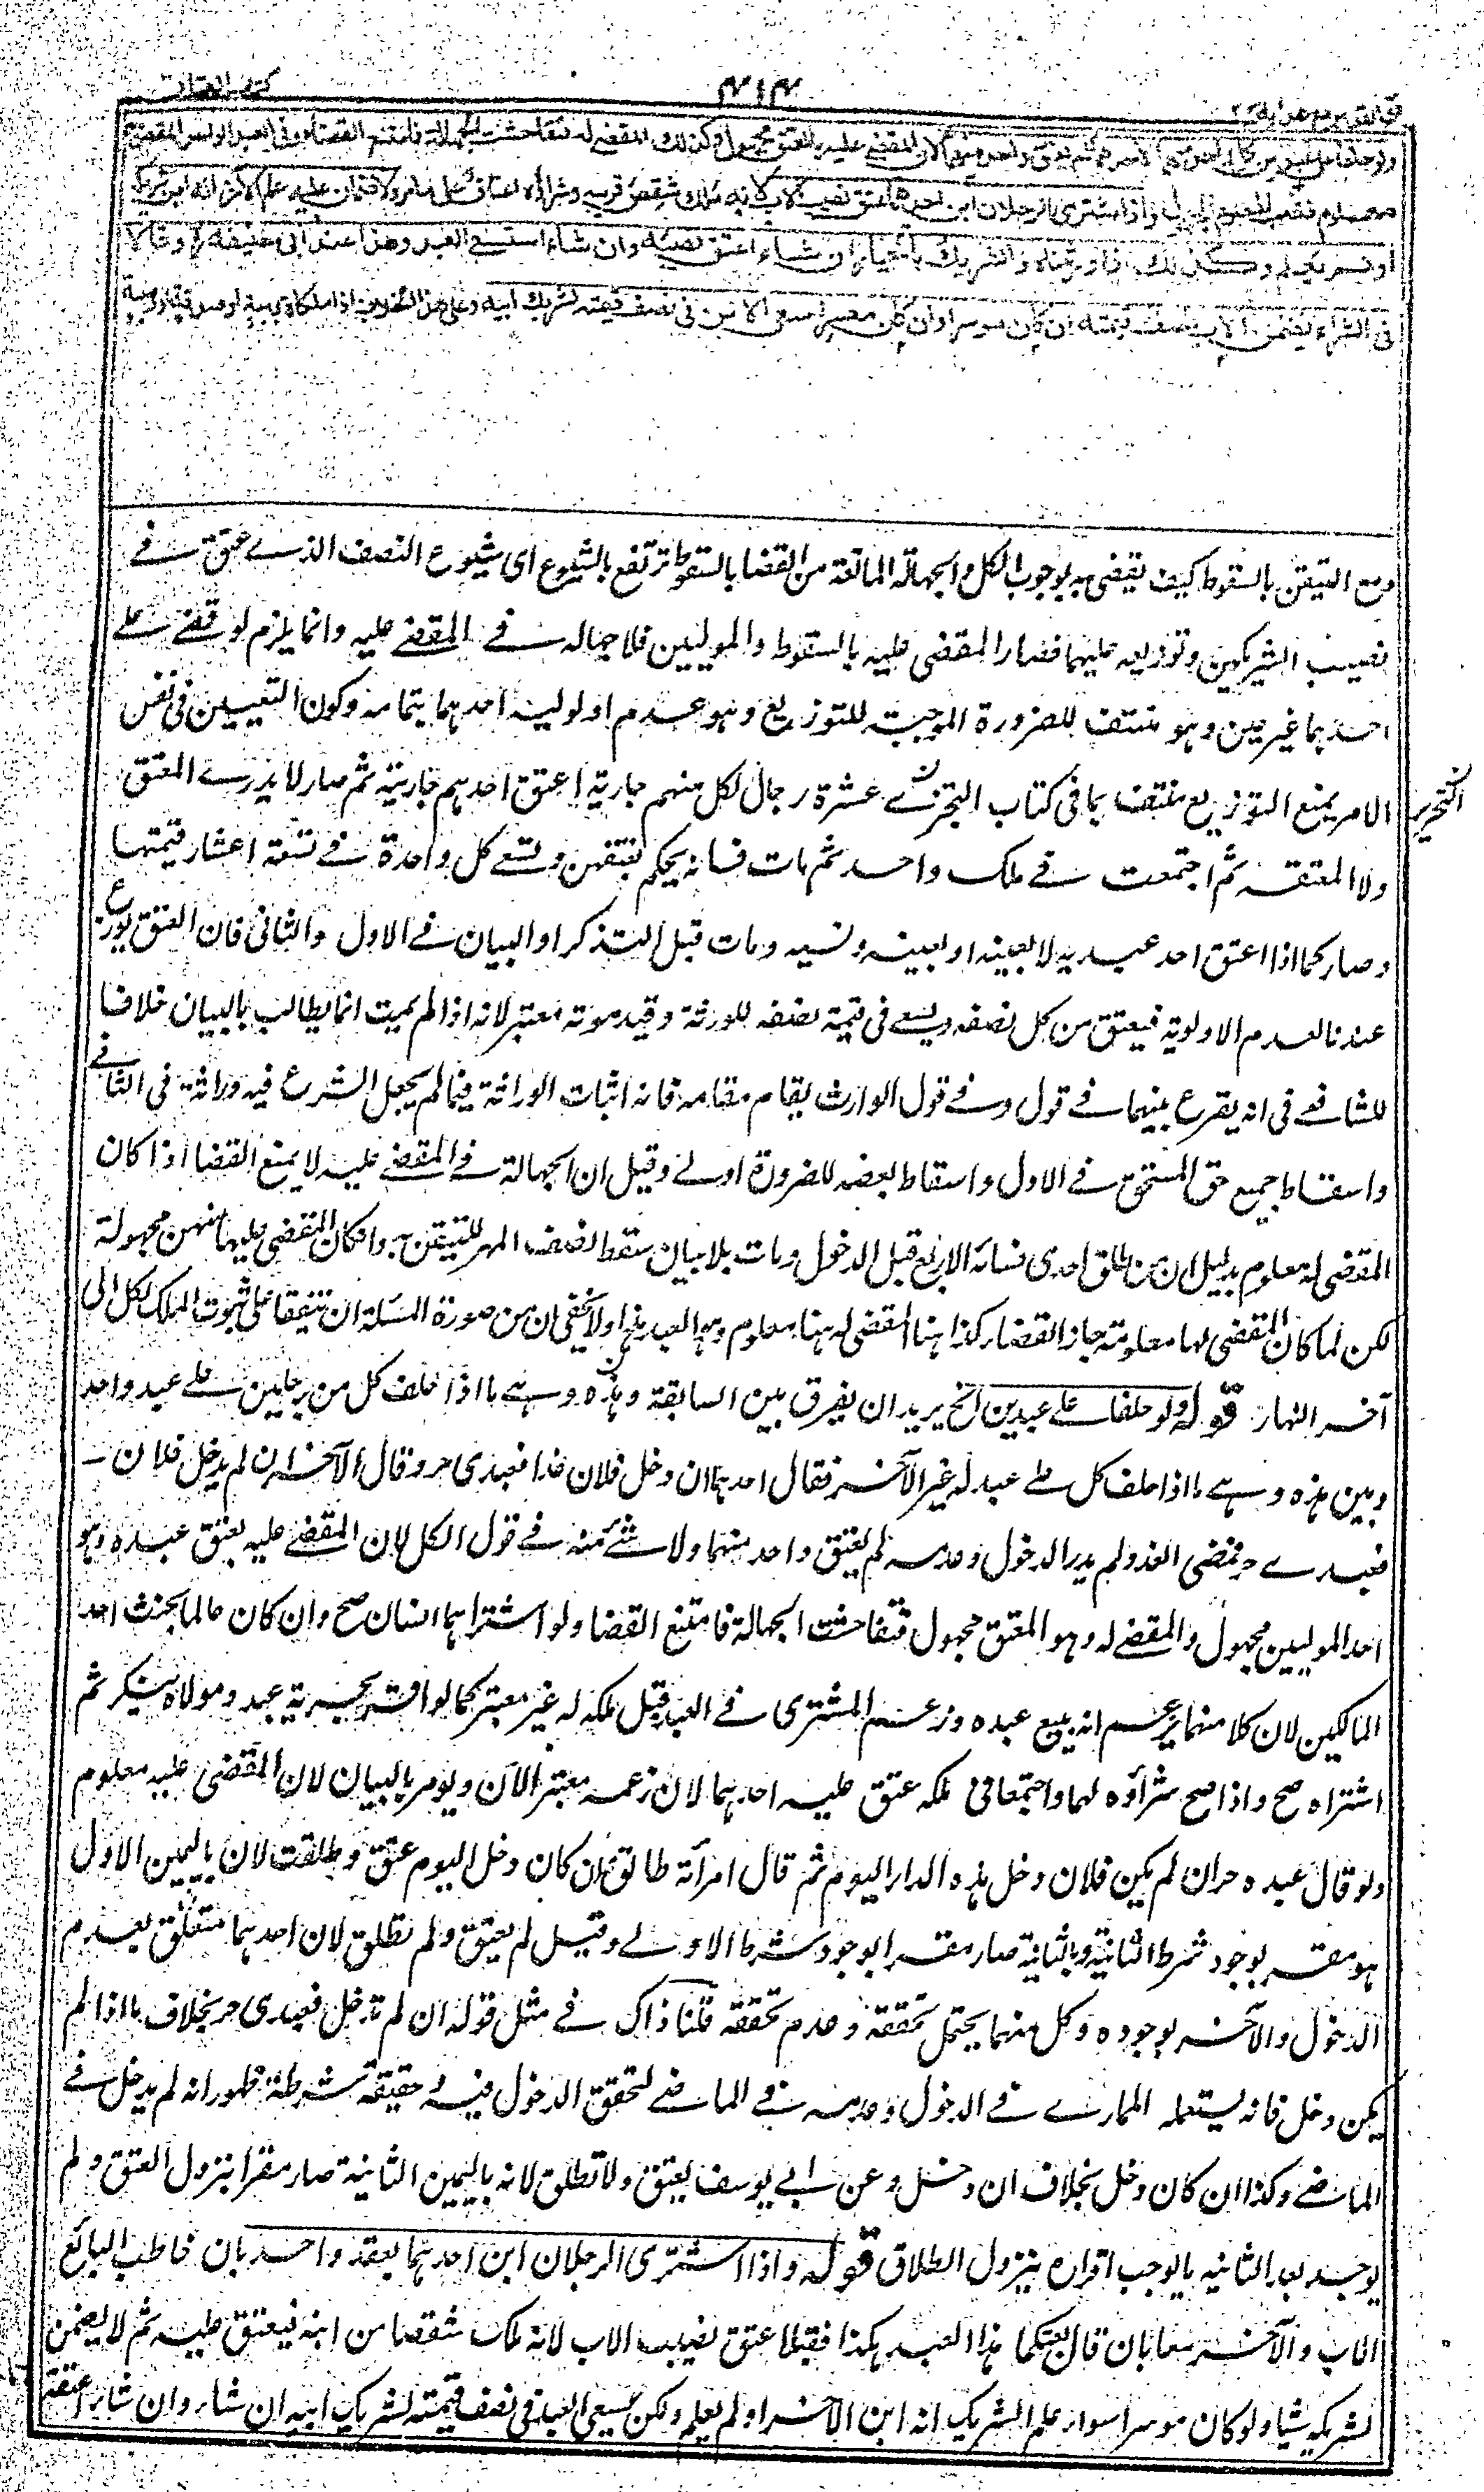 ۴۱۴
ولو حلفا على عبدين كل واحد منهما لاحدهما لم يعتق واحد منهما لان المقضي عليه بالعتق مجهول وكذلك المقضي له فتفاحشت الجهالة فامتنع القضاء وفي العبد الواحد المقضي
معلوم فغلب المعلوم المجهول واذا اشترى الرجلان ابن احدهما عتق نصيب الاب لانه ملك شقص قريبه وشراؤه اعتاق على ما مر ولا ضمان عليه علم الآخر انه ابن شريكه
او لم يعلم وكذلك اذا ورثاه والشريك بالخيار ان شاء اعتق نصيبه وان شاء استسعى العبد وهذا عند ابي حنيفة وقالا
في الشراء يضمن الاب نصف قيمته ان كان موسرا وان كان معسرا سعى الابن في نصف قيمته لشريك ابيه وعلى هذا الخلاف اذا ملكاه بهبة او صدقة او وصية
ومع التيقن بالسقوط كيف يقضى به بوجوب الكل والجهالة المانعة من القضا بالسقوط ترتفع بالشيوع اى شيوع النصف الذى عتق فى
نصيب الشريكين وتوزيعه عليهما فصار المقضى عليه بالسقوط والموليين فلا جهالة فى المقضى عليه وانما يلزم لو قضى على
احدهما غير عين وهو منتف للضرورة الموجبة للتوزيع وهو عدم اولوية احدهما بتمامه وكون التعيين فى نفس
الامر يمنع التوزيع منتف بما فى كتاب التحرى عشرة رجال لكل منهم جارية اعتق احدهم جاريته ثم صار لا يدرى المعتق
ولا المعتقه ثم اجتمعت فى ملك واحد ثم مات فانه يحكم بعتقهن وتسعى كل واحدة فى تسعة اعشار قيمتها
وصار كما اذا اعتق احد عبديه لا بعينه او بعينه ونسيه ومات قبل التذكر او البيان فى الاول والثانى فان العتق يوزع
عندنا لعدم الاولوية فيعتق من كل نصفه ويسعى فى قيمة نصفه للورثة وقيد موته معتبر لانه اذا لم يمت انما يطالب بالبيان خلافا
للشافعى فى انه يقرع بينهما فى قول وفى قول الوارث يقام مقامه فانه اثبات الوراثة فيما لم يجعل الشرع فيه وراثة فى الثانى
واسقاط جميع حق المستحق فى الاول واسقاط بعضه للضرورة اولى وقيل ان الجهالة فى المقضى عليه لا يمنع القضا اذا كان
المقضى له معلوم بدليل ان من طلق احدى نسائه الاربع قبل الدخول ومات بلا بيان سقط نصف المهر للتيقن به وان كان المقضى عليها منهن مجهولة
لكن لما كان المقضى لها معلومة جاز القضاء كذا هنا المقضى له هنا معلوم وهو العبد هذا ولا يخفى ان من صورة المسئلة ان تتفقا على ثبوت الملك لكل الى
آخر النهار قوله ولو حلفا على عبدين الخ يريد ان يفرق بين السابقة وهذه وهى ما اذا حلف كل من رجلين على عبد واحد
وبين هذه وهى ما اذا حلف كل على عبد له غير الآخر فقال احدهما ان دخل فلان غدا فعبدى حر وقال الآخر ان لم يدخل فلان
فعبدى حر فمضى الغد ولم يدر الدخول وعدمه لم يعتق واحد منهما ولا شئ منه فى قول الكل لان المقضى عليه بعتق عبده وهو
احد الموليين مجهول والمقضى له وهو المعتق مجهول فتفاحشت الجهالة فامتنع القضا ولو اشتراهما انسان صح وان كان عالما بحنث احد
المالكين لان كلا منهما يزعم انه يبيع عبده وزعم المشترى فى العبد قبل ملكه له غير معتبر كما لو اقر بحرية عبد ومولاه ينكر ثم
اشتراه صح واذا صح شراؤه لهما واجتمعا فى ملكه عتق عليه احدهما لان زعمه معتبر الآن ويؤمر بالبيان لان المقضى عليه معلوم
ولو قال عبده حر ان لم يكن فلان دخل هذه الدار اليوم ثم قال امرأته طالق ان كان دخل اليوم عتق وطلقت لان باليمين الاول
هو مقر بوجود شرط الثانية وبالثانية صار مقرا بوجود شرط الاولى وقيل لم يعتق ولم تطلق لان احدهما متعلق بعدم
الدخول والآخر بوجوده وكل منهما يحتمل تحققه وعدم تحققه قلنا ذاك فى مثل قوله ان لم تدخل فعبدى حر بخلاف ما اذا لم
يكن دخل فانه يستعمله الممارى فى الدخول وعدمه فى الماضى لتحقق الدخول فيه وحقيقة شرطه ظهور انه لم يدخل فى
الماضى وكذا ان كان دخل بخلاف ان دخل وعن ابى يوسف يعتق ولا تطلق لانه باليمين الثانية صار مقرا بنزول العتق ولم
يوجد بعد الثانية ما يوجب اقراره بنزول الطلاق قوله واذا اشترى الرجلان ابن احدهما بعقد واحد بان خاطب البائع
الاب والآخر معا بان قال بعتكما هذا العبد بكذا فقبلا عتق نصيب الاب لانه ملك شقصا من ابنه فيعتق عليه ثم لا يضمن
لشريكه شيا ولو كان موسرا سواء علم الشريك انه ابن الآخر او لم يعلم ولكن يسعى العبد فى نصف قيمته لشريك ابيه ان شاء وان شاء اعتقه